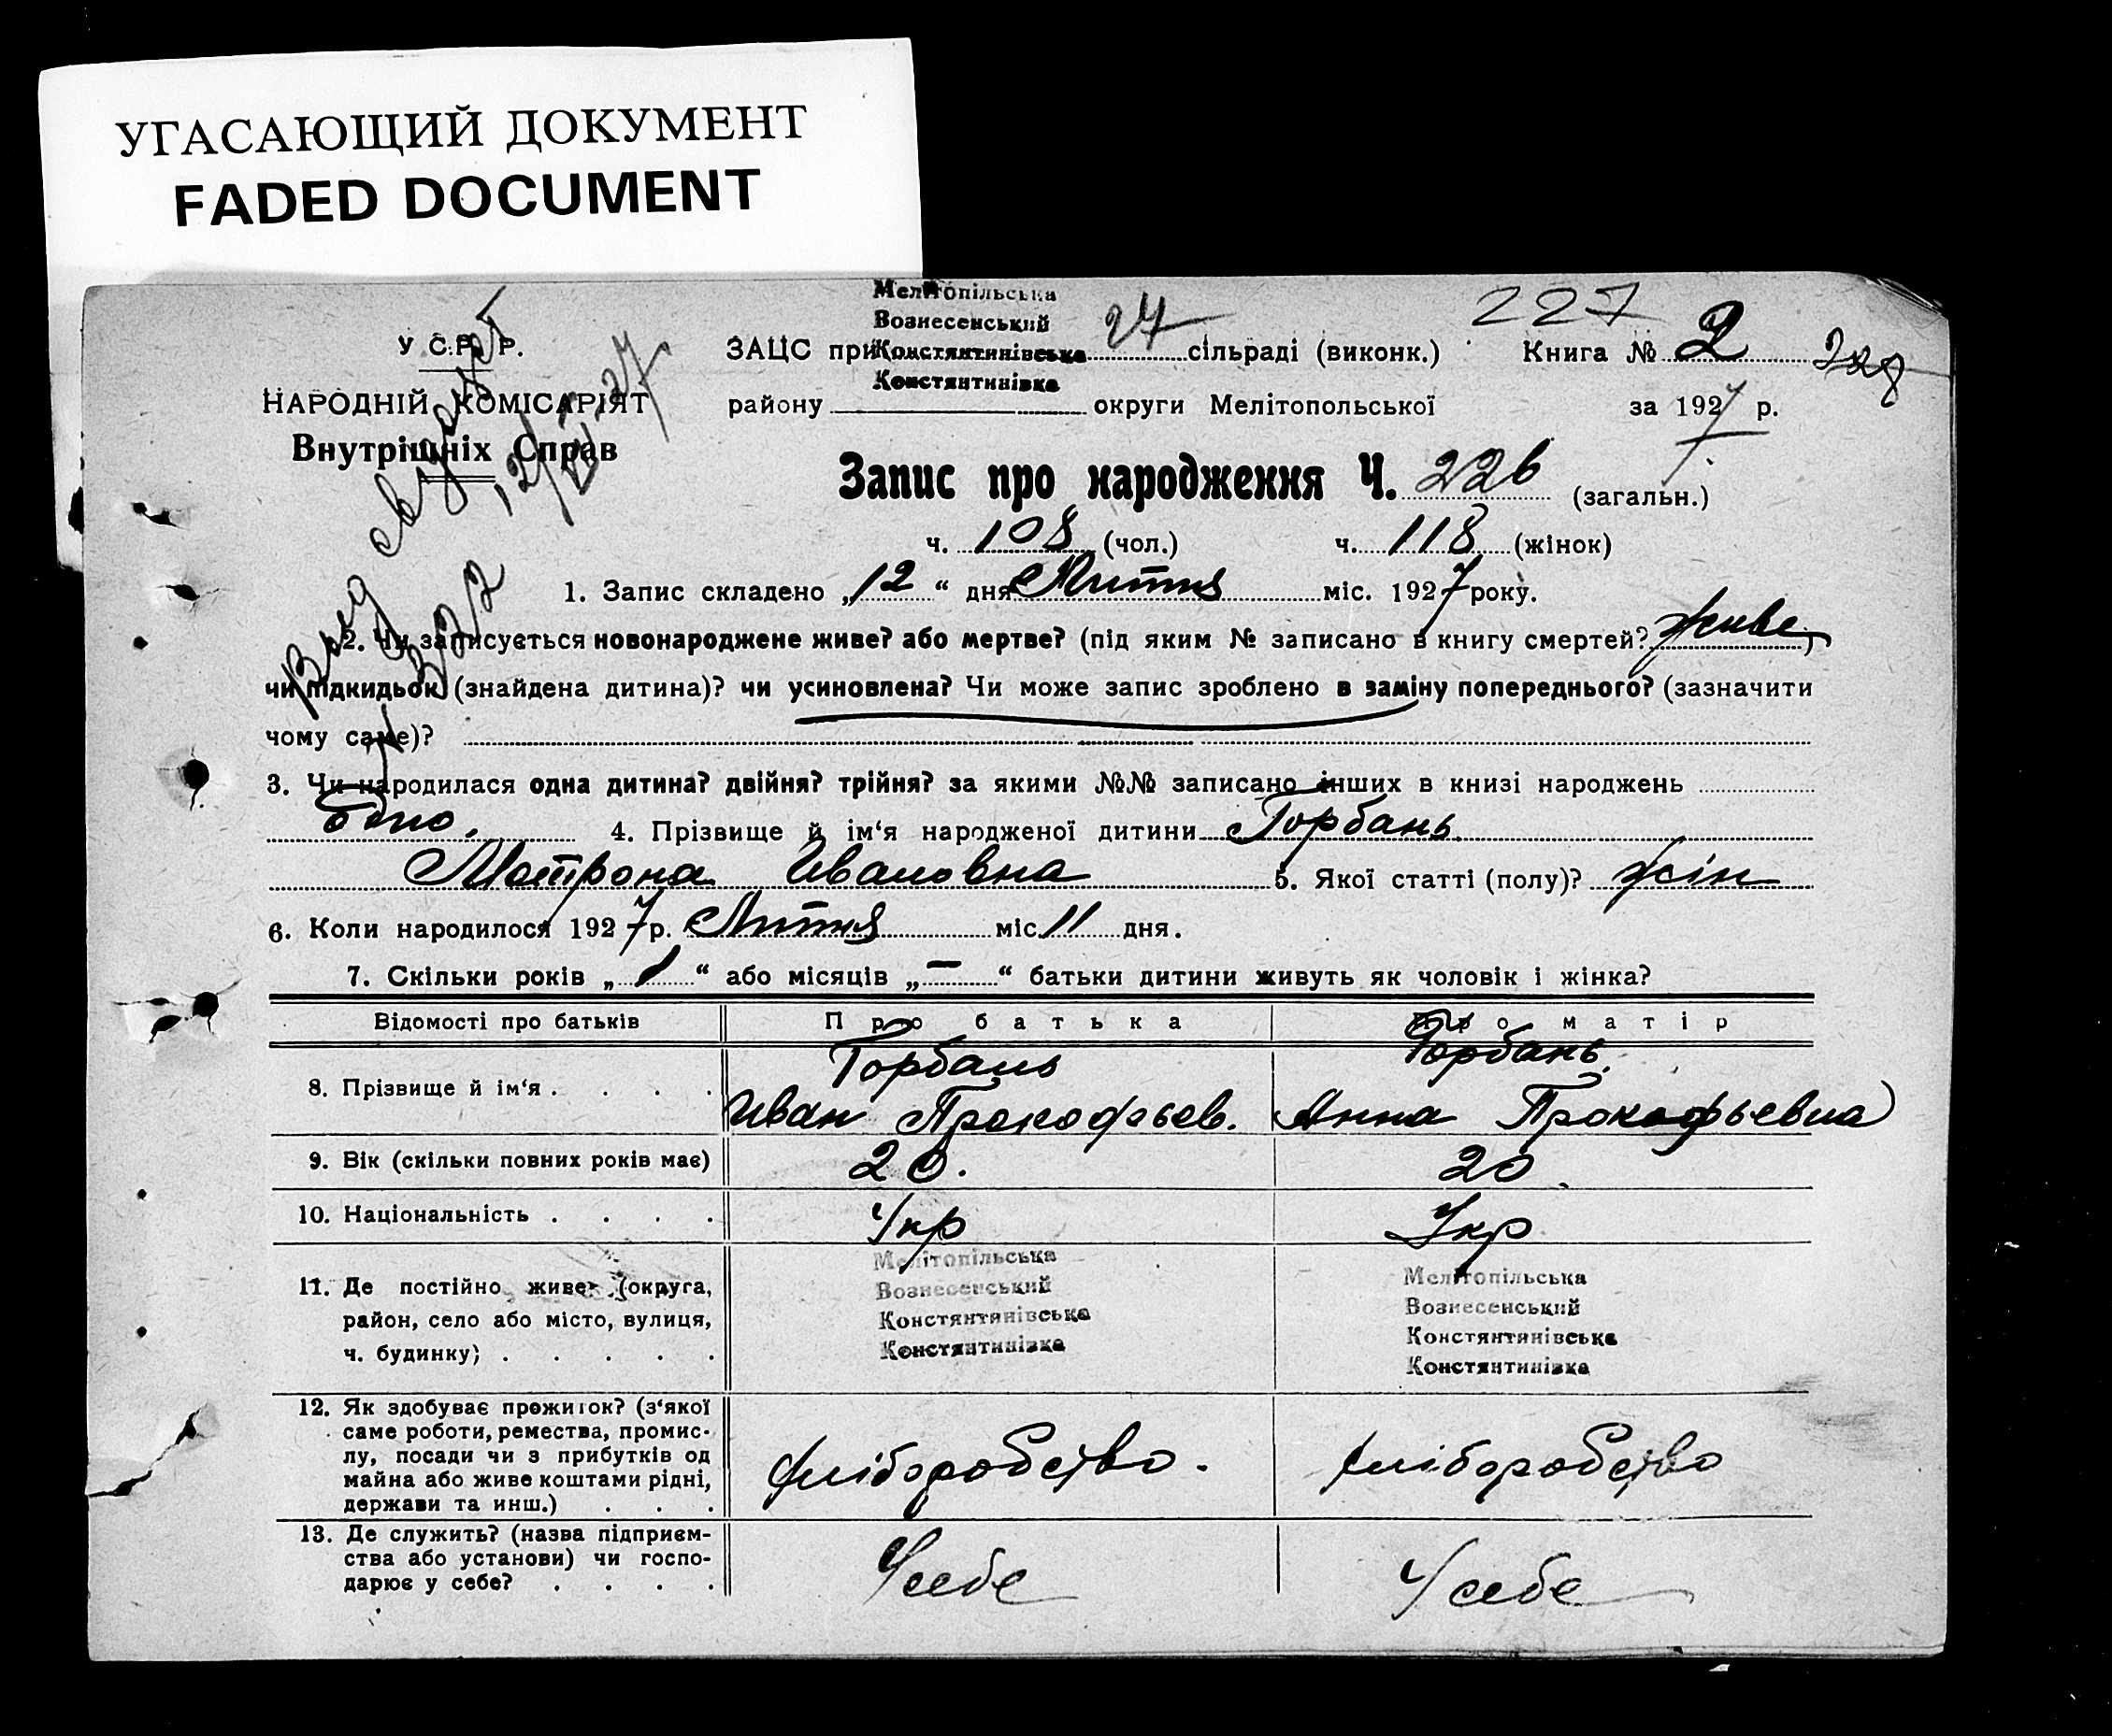 УГАСАЮЩИЙ ДОКУМЕНТ
FADED DOCUMENT
227
У С.Р. Р.
НАРОДНІЙ КОМІСАРІЯТ
Внутрішніх Справ
Мелітопільська
Вознесенський
Констянтинівська
Констянтинівка
ЗАЦС при 24 сільраді (виконк.) Книга № 2
району округи Мелітопольської за 1927 р.
Запис про народження Ч. 226 (загальн.)
ч. 108 (чол.) ч. 118 (жінок)
1. Запис складено „12“ дня Липня міс. 1927 року.
2. Чи записується новонароджене живе? або мертве? (під яким № записано в книгу смертей? живе)
чи підкидьок (знайдена дитина)? чи усиновлена? Чи може запис зроблено в заміну попереднього? (зазначити
чому саме)?
3. Чи народилася одна дитина? двійня? трійня? за якими №№ записано інших в книзі народжень
одно. 4. Прізвище й ім‘я народженої дитини Горбань
Мотрона Ивановна 5. Якої статті (полу)? жін
6. Коли народилося 1927 р. Липня міс 11 дня.
7. Скільки років „1“ або місяців „—“ батьки дитини живуть як чоловік і жінка?
Відомості про батьків Про батька Про матір
8. Прізвище й ім‘я . . . . Горбань Иван Прокофьев. Горбань Анна Прокофьевна
9. Вік (скільки повних років має) 20. 20.
10. Національність . . . . Укр Укр
11. Де постійно живе (округа,
район, село або місто, вулиця,
ч. будинку) . . . . .
Мелітопільська
Вознесенський
Констянтинівська
Констянтинівка
Мелітопільська
Вознесенський
Констянтинівська
Констянтинівка
12. Як здобуває прожиток? (з‘якої
саме роботи, ремества, промис-
лу, посади чи з прибутків од
майна або живе коштами рідні,
держави та инш.) . . .
хліборобство. хліборобство
13. Де служить? (назва підприєм-
ства або установи) чи госпо-
дарює у себе? . . . .
У себе У себе